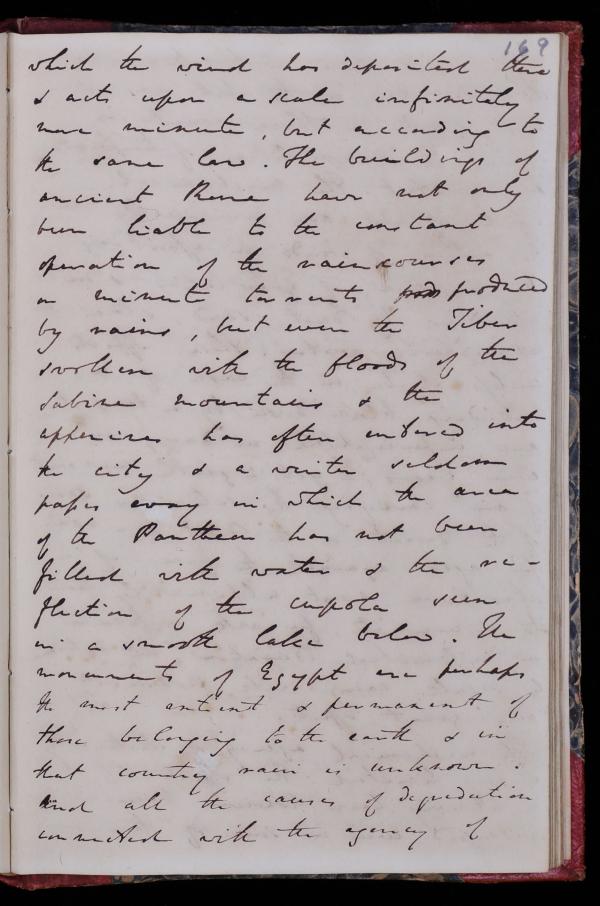 169
which the wind has deposited there
& acts upon a scale infinitely
more minute, but according to
the same law. The buildings of
ancient Rome have not only
been liable to the constant
operation of the rain courses
or minute torrents produced
by rains, but even the Tiber
swollen with the floods of the
Sabine mountains & the
appenines has often entered into
the city & a winter seldom
passes away in which the area
of the Pantheon has not been
filled with water & the re-
flection of the cupola seen
in a smooth lake below. The
monuments of Egypt are perhaps
the most antient & permanent of
those belonging to the earth & in
that country rain is unknown.
And all the causes of degradation
connected with the agency of